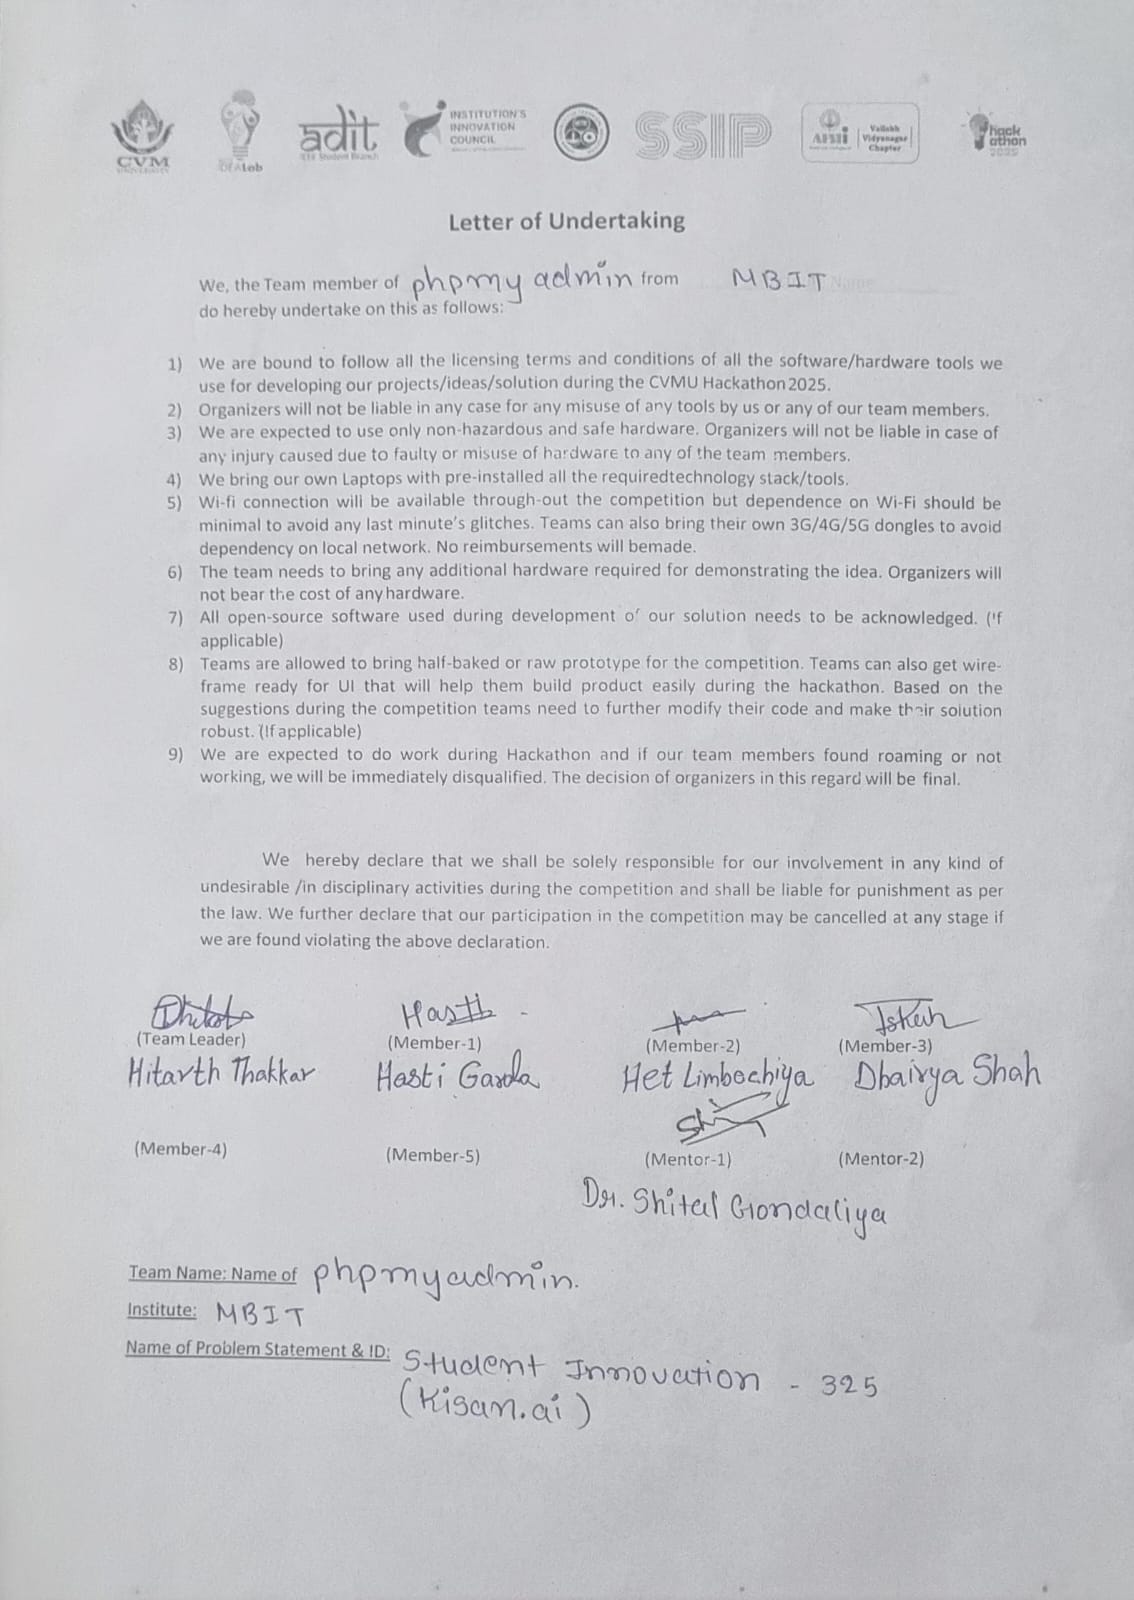 CVM
UNIVERSITY
adit
INSTITUTION'S
INNOVATION
COUNCIL
SSIP
Vallabh
Vidyanagar
Chapter
hack
athon
2025
Letter of Undertaking
We, the Team member of phpmy admin from MBIT
do hereby undertake on this as follows:
1) We are bound to follow all the licensing terms and conditions of all the software/hardware tools we
use for developing our projects/ideas/solution during the CVMU Hackathon 2025.
2) Organizers will not be liable in any case for any misuse of any tools by us or any of our team members.
3) We are expected to use only non-hazardous and safe hardware. Organizers will not be liable in case of
any injury caused due to faulty or misuse of hardware to any of the team members.
4) We bring our own Laptops with pre-installed all the requiredtechnology stack/tools.
5) Wi-fi connection will be available through-out the competition but dependence on Wi-Fi should be
minimal to avoid any last minute's glitches. Teams can also bring their own 3G/4G/5G dongles to avoid
dependency on local network. No reimbursements will bemade.
6) The team needs to bring any additional hardware required for demonstrating the idea. Organizers will
not bear the cost of any hardware.
7) All open-source software used during development of our solution needs to be acknowledged. (If
applicable)
8) Teams are allowed to bring half-baked or raw prototype for the competition. Teams can also get wire-
frame ready for UI that will help them build product easily during the hackathon. Based on the
suggestions during the competition teams need to further modify their code and make their solution
robust. (If applicable)
9) We are expected to do work during Hackathon and if our team members found roaming or not
working, we will be immediately disqualified. The decision of organizers in this regard will be final.
We hereby declare that we shall be solely responsible for our involvement in any kind of
undesirable /in disciplinary activities during the competition and shall be liable for punishment as per
the law. We further declare that our participation in the competition may be cancelled at any stage if
we are found violating the above declaration.
Hasti
(Team Leader) (Member-1) (Member-2) (Member-3)
Hitarth Thakkar Hasti Garda Het Limbochiya Dhairya Shah
(Member-4) (Member-5) (Mentor-1) (Mentor-2)
Dr. Shital Gondaliya
Team Name: Name of phpmyadmin.
Institute: MBIT
Name of Problem Statement & ID: Student Innovation - 325
(Kisan.ai)